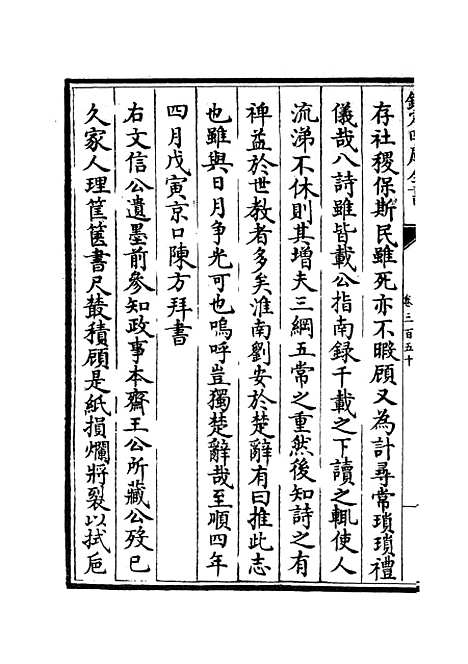 欽定四庫全書
卷三百五十
存社稷保斯民雖死亦不暇顧又為計尋常瑣瑣禮
儀哉八詩雖皆載公指南録千載之下讀之輒使人
流涕不休則其增夫三綱五常之重然後知詩之有
裨益於世教者多矣淮南劉安於楚辭有曰推此志
也雖與日月争光可也嗚呼豈獨楚辭哉至順四年
四月戊寅京口陳方拜書
右文信公遺墨前參知政事本齋王公所藏公歿已
久家人理筐篋書尺叢積顧是紙損爛將裂以拭巵